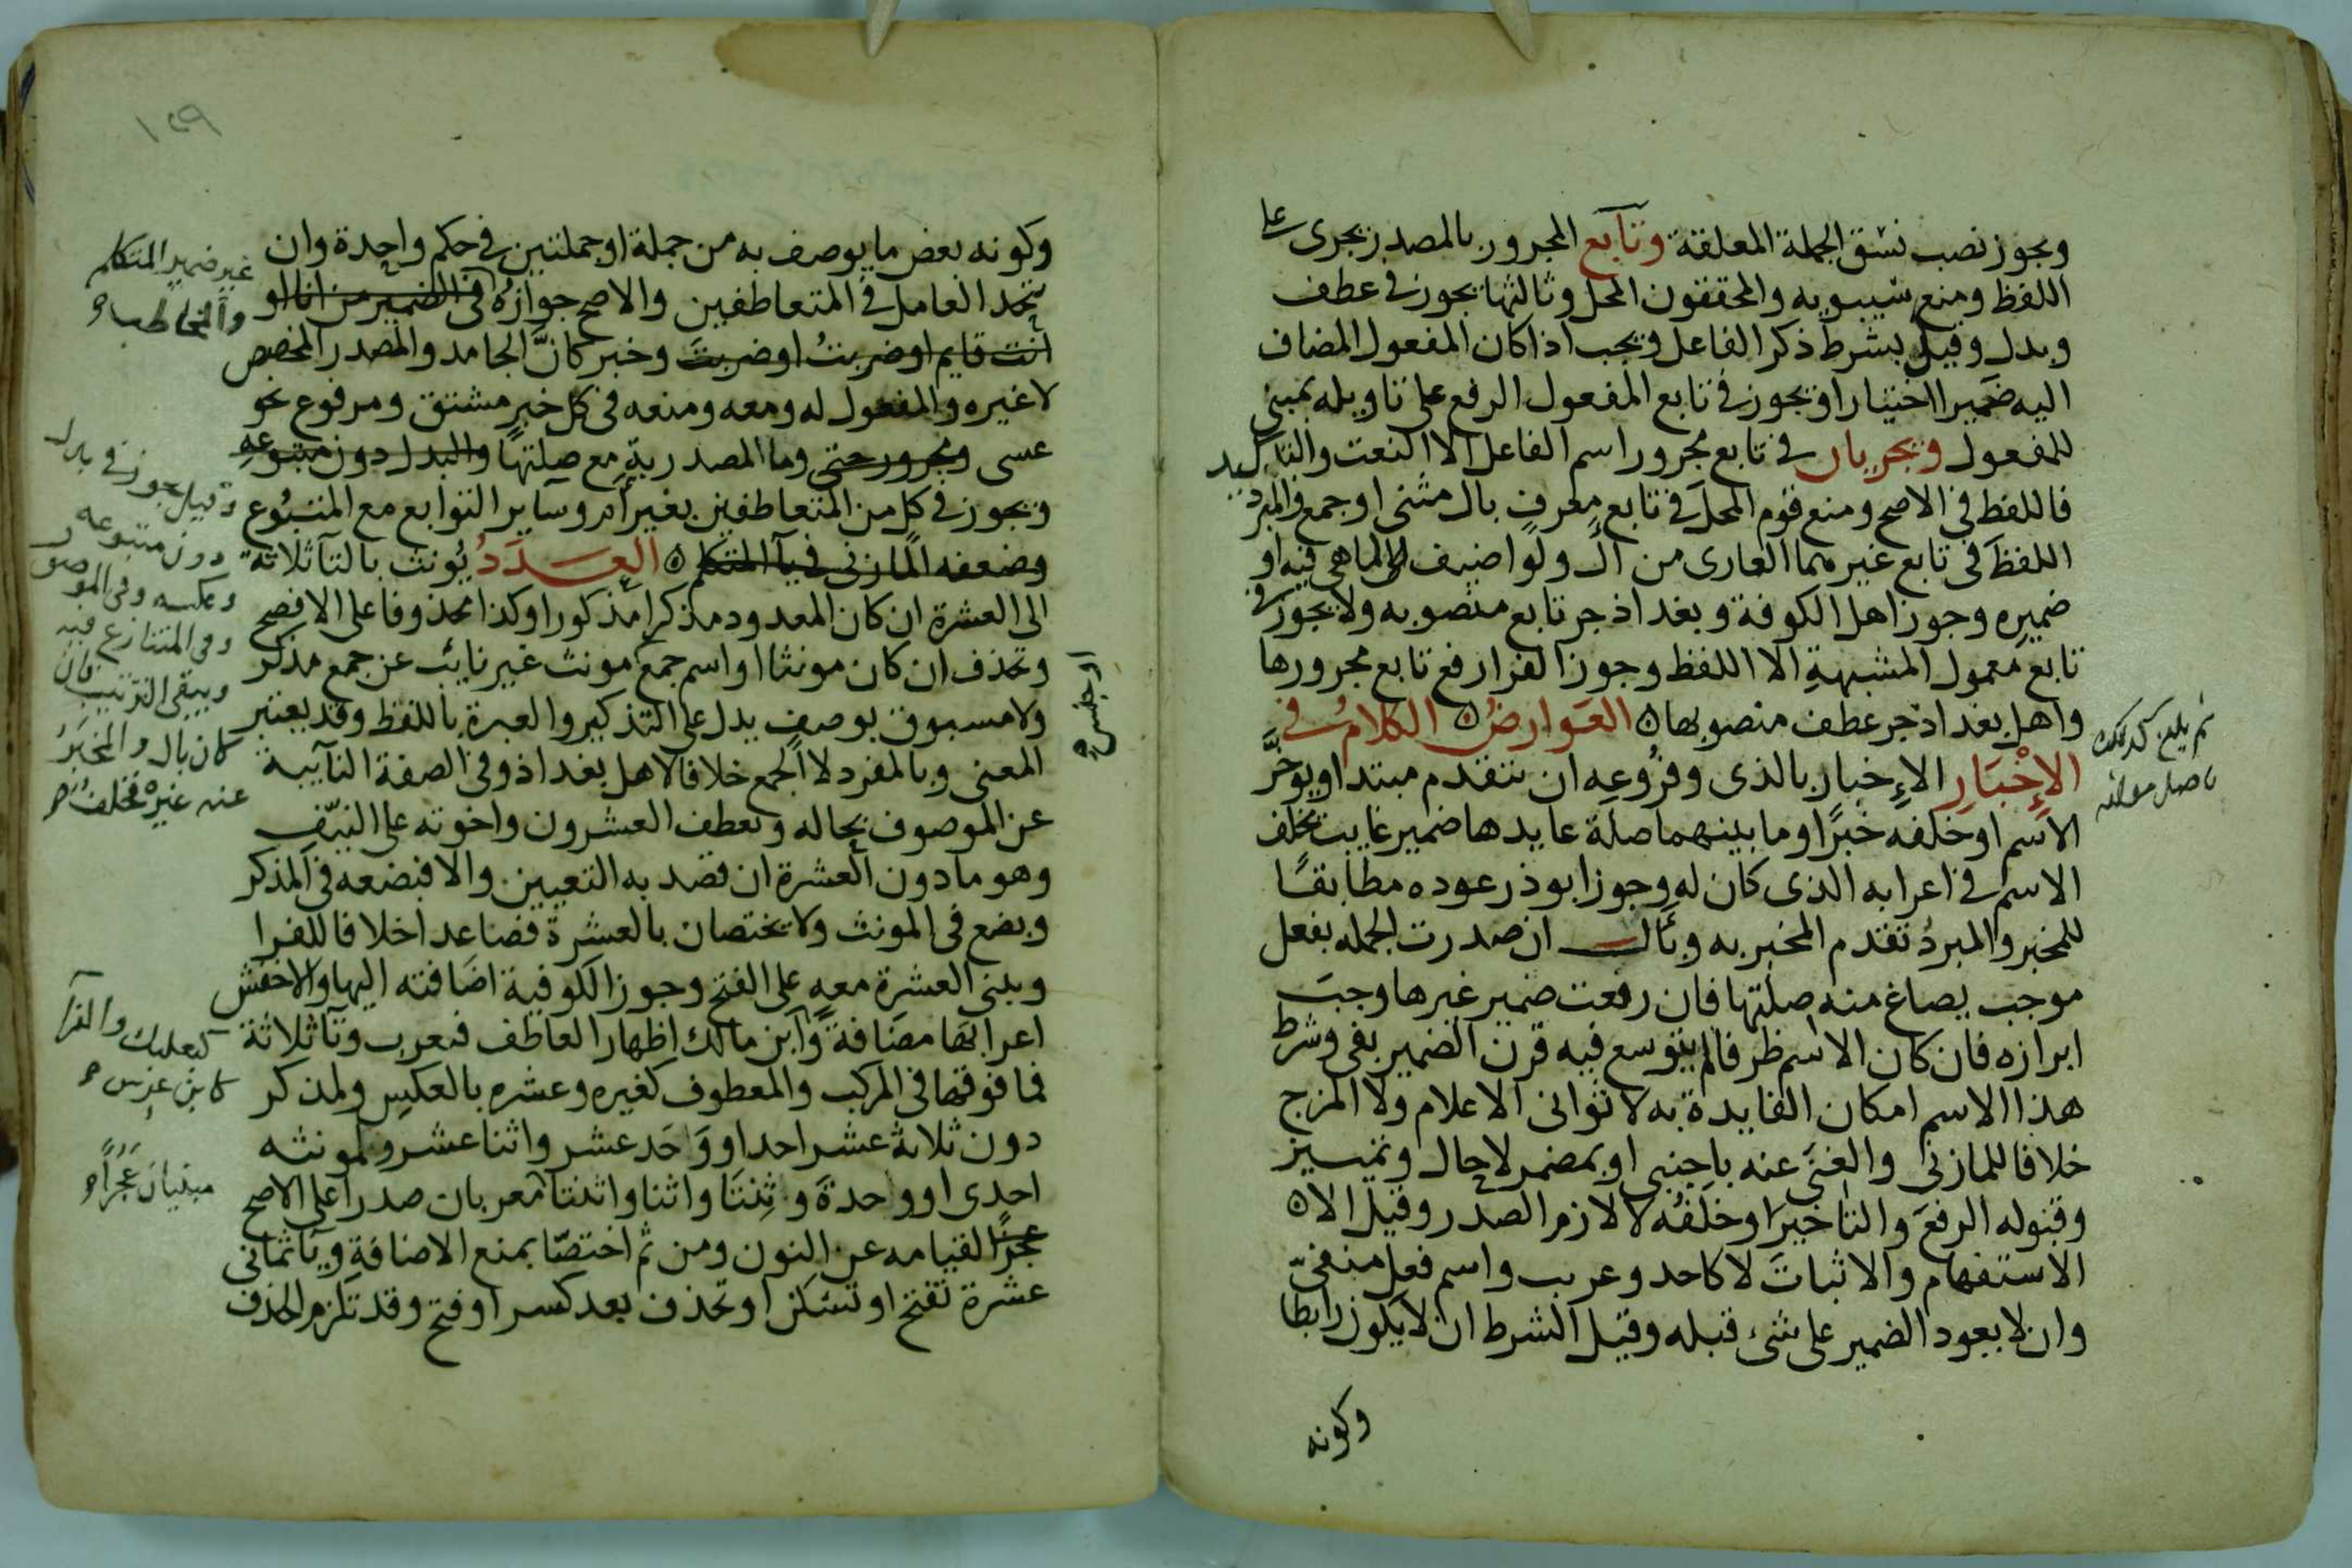 ويجوز نصب نسق الجملة المعلقة وتابع المجرور بالمصدر يجرى على
اللفظ ومنع سيبويه والمحققون المحل وثالثها يجوز فى عطف
وبدل وقيل بشرط ذكر الفاعل ويجب اذا كان المفعول المضاف
اليه ضميرا اختيارا ويجوز فى تابع المفعول الرفع على تاويله بمبنى
للمفعول ويجريان فى تابع مجرور اسم الفاعل الا النعت والتاكيد
فاللفظ فى الاصح ومنع قوم المحل فى تابع معرف بال مثنى او جمع والمبرد
اللفظ فى تابع غيرهما العارى من ال ولو اضيف لما هى فيه او
ضميره وجوز اهل الكوفة وبغداذ جر تابع منصوبه ولا يجوز فى
تابع معمول المشبهة الا اللفظ وجوز الفرا رفع تابع مجرورها
واهل بغداذ جر عطف منصوبها ٥ العوارض ٥ الكلام فى
الإخبار الإخبار بالذى وفروعه ان يتقدم مبتدا ويوخر
الاسم او خلفه خبرا وما بينهما صلة عايدها ضمير غايب يخلف
الاسم فى اعرابه الذى كان له وجوز ابو ذر عوده مطابقا
للمخبر والمبرد تقدم المخبر به وبأل ان صدرت الجمله بفعل
موجب يصاغ منه صلتها فان رفعت ضمير غيرها وجب
ابرازه فان كان الاسم ظرفا لم يتوسع فيه قرن الضمير بفى وشرط
هذا الاسم امكان الفايدة به لا ثوانى الاعلام ولا المزج
خلافا للمازنى والغنى عنه باجنبى او بمضمر لا حال وتمييز
وقبوله الرفع والتاخير او خلفه لا لازم الصدر وقيل الا ٥
الاستفهام والاثبات لا كاحد وعريب واسم فعل منفى
وان لا يعود الضمير على شىء قبله وقيل الشرط ان لا يكون رابطا
وكونه
ثم بلغ كذلك
١٥٩
وكونه بعض ما يوصف به من جملة او جملتين فى حكم واحدة وان
يتحد العامل فى المتعاطفين والاصح جوازه فى الضمير من انا او
انت قايم او ضربت او ضربت وخبر كان الجامد والمصدر المخصص
لا غيره والمفعول له ومعه ومنعه فى كل خبر مشتق ومرفوع نحو
عسى ومجرور حتى وما المصدرية مع صلتها والبدل دون متبوعه
ويجوز فى كل من المتعاطفين بغير أم وساير التوابع مع المتبوع
وضعفه المازنى فى يآ المتكلم ٥ العدد يونث بالتآ ثلاثة
الى العشرة ان كان المعدود مذكرا مذكورا وكذا محذوفا على الافصح
وتحذف ان كان مونثا او اسم جمع مونث غير نايب عن جمع مذكر
ولا مسبوق بوصف يدل على التذكير والعبرة باللفظ وقد يعتبر
المعنى وبالمفرد لا الجمع خلافا لاهل بغداذ وفى الصفة النايبة
عن الموصوف بحاله وتعطف العشرون واخوته على النيف
وهو ما دون العشرة ان قصد به التعيين والا فبضعه فى المذكر
وبضع فى المونث ولا يختصان بالعشرة فصاعدا خلافا للفرا
وبنى العشرة معه على الفتح وجوز الكوفية اضافته اليها والاخفش
اعرابها مضافة وابن مالك اظهار العاطف فيعرب وتآ ثلاثة
فما فوقها فى المركب والمعطوف كغيره وعشره بالعكس ولمذكر
دون ثلاثة عشر احد او وحد عشر واثنا عشر ولمونثه
احدى او وواحدة وثنتا واثنا واثنتا معربان صدرا على الاصح
عجزا لقيامه عن النون ومن ثم اختصا بمنع الاضافة ويآ ثمانى
عشرة تفتح او تسكن او تحذف بعد كسر او فتح وقد تلزم الحذف
غير ضمير المتكلم
والمخاطب
وقيل يجوز فى بدل
دون متبوعه
وعكسه وفى الموصوف
وفى المتنازع فيه
ويبقى الترتيب فان
كان بال والمخبر
عنه غيره تخلف
او جنس
كبعلبك والفرا
كابن عرس
مبنيان عجزا